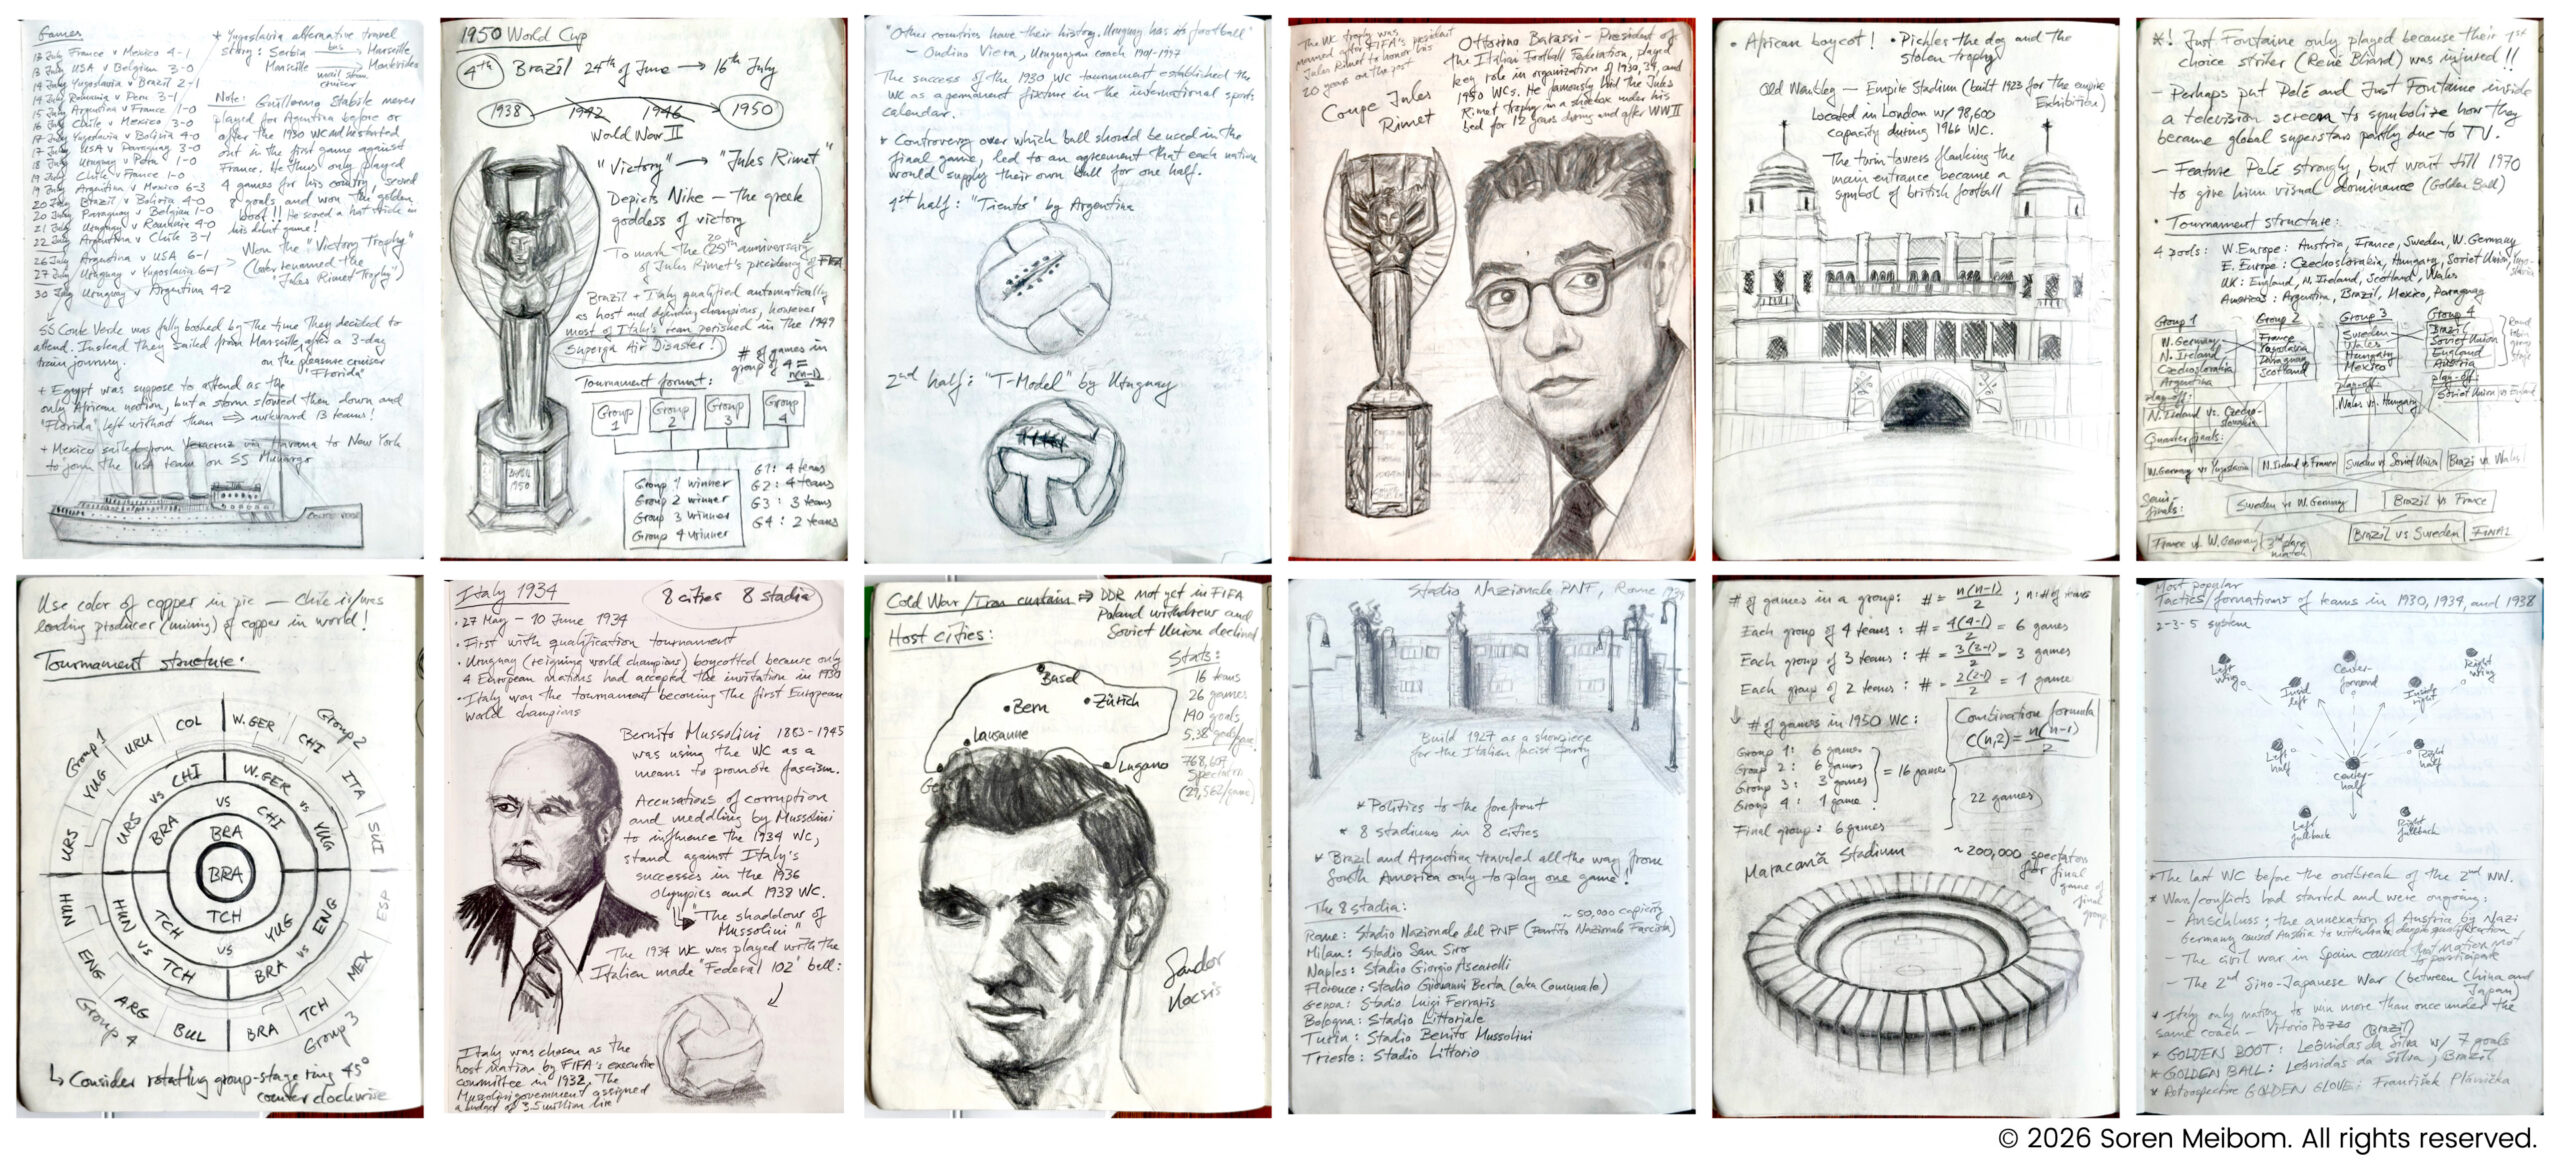 Games
13 July France v Mexico 4-1
13 July USA v Belgium 3-0
14 July Yugoslavia v Brazil 2-1
14 July Romania v Peru 3-1
15 July Argentina v France 1-0
16 July Chile v Mexico 3-0
17 July Yugoslavia v Bolivia 4-0
17 July USA v Paraguay 3-0
18 July Uruguay v Peru 1-0
19 July Chile v France 1-0
19 July Argentina v Mexico 6-3
20 July Brazil v Bolivia 4-0
20 July Paraguay v Belgium 1-0
21 July Uruguay v Romania 4-0
22 July Argentina v Chile 3-1
26 July Argentina v USA 6-1
27 July Uruguay v Yugoslavia 6-1
30 July Uruguay v Argentina 4-2
* Yugoslavia alternative travel
story: Serbia bus Marseille
Marseille mail steam cruiser Montevideo
Note: Guillermo Stabile never
played for Agentina before or
after the 1930 WC and he started
out in the first game against
France. He thus only played
4 games for his country, scored
8 goals and won the golden
boot!! He scored a hat trick in
his debut game!
Won the "Victory Trophy"
(later renamed the
"Jules Rimet Trophy")
SS Conte Verde was fully booked by the time they decided to
attend. Instead they sailed from Marseille, after a 3-day
train journey. on the pleasure cruiser
"Florida"
+ Egypt was suppose to attend as the
only African nation, but a storm slowed them down and
"Florida" left without them ⇒ awkward 13 teams!
+ Mexico sailed from Veracruz via Havana to New York
to join the USA team on SS Munargo
1950 World Cup
4th Brazil 24th of June → 16th July
1938 1942 1946 1950
World War II
"Victory" → "Jules Rimet"
Depicts Nike – the greek
goddess of victory
To mark the (25th) anniversary
20
of Jules Rimet's presidency of FIFA
Brazil + Italy qualified automatically
as host and defending champions, however
most of Italy's team perished in the 1949
Superga Air Disaster!
# of games in
group of 4 =
n(n-1)
2
Tournament format:
Group 1
Group 2
Group 3
Group 4
Group 1 winner
Group 2 winner
Group 3 winner
Group 4 winner
G1: 4 teams
G2: 4 teams
G3: 3 teams
G4: 2 teams
1950
"Other countries have their history. Uruguay has its football"
– Ondino Viera, Uruguayan coach 1901-1997
The success of the 1930 WC tournament established the
WC as a permanent fixture in the international sports
calendar.
* Controversy over which ball should be used in the
final game, led to an agreement that each nation
would supply their own ball for one half.
1st half: "Tiento" by Argentina
2nd half: "T-Model" by Uruguay
The WC trophy was
named after FIFA's president
Jules Rimet to honor his
20 years on the post
Coupe Jules
Rimet
Ottorino Barassi – President of
the Italian Football Federation, played
key role in organization of 1930, 34, and
1950 WCs. He famously hid the Jules
Rimet trophy in a shoebox under his
bed for 12 years during and after WWII
• African boycott! • Pickles the dog and the
stolen trophy
Old Wembley – Empire Stadium (built 1923 for the empire
Exhibition)
Located in London w/ 98,600
capacity during 1966 WC.
The twin towers flanking the
main entrance became a
symbol of british football
*! Just Fontaine only played because their 1st
choice striker (René Bliard) was injured!!
– Perhaps put Pelé and Just Fontaine inside
a television screen to symbolize how they
became global superstars partly due to TV.
– Feature Pelé strongly, but wait till 1970
to give him visual dominance (Golden Ball)
• Tournament structure:
4 pools: W. Europe: Austria, France, Sweden, W. Germany
E. Europe: Czechoslovakia, Hungary, Soviet Union, Yugoslavia
UK: England, N. Ireland, Scotland, Wales
Americas: Argentina, Brazil, Mexico, Paraguay
Group 1
W. Germany
N. Ireland
Czechoslovakia
Argentina
play-off:
N. Ireland vs. Czechoslovakia
Group 2
France
Yugoslavia
Paraguay
Scotland
Group 3
Sweden
Wales
Hungary
Mexico
play-off:
Wales vs. Hungary
Group 4
Brazil
Soviet Union
England
Austria
play-off:
Soviet Union vs England
Quarterfinals:
W. Germany vs Yugoslavia
N. Ireland vs France
Sweden vs Soviet Union
Brazil vs Wales
Semi-finals:
Sweden vs W. Germany
Brazil vs France
France vs. W. Germany 3rd place match
Brazil vs Sweden FINAL
Use color of copper in pic – Chile is/was
leading producer (mining) of copper in world!
Tournament structure:
Group 1
Group 2
Group 3
Group 4
COL
W.GER
CHI
ITA
SUI
ESP
MEX
TCH
BRA
BUL
ARG
ENG
HUN
URS
YUG
URU
URS vs CHI
W.GER vs YUG
BRA vs ENG
HUN vs TCH
BRA vs CHI
TCH vs YUG
BRA
TCH
BRA
↳ Consider rotating group-stage ring 45°
counter clockwise
Italy 1934
8 cities 8 stadia
• 27 May – 10 June 1934
• First with qualification tournament
• Uruguay (reigning world champions) boycotted because only
4 European nations had accepted the invitation in 1930
• Italy won the tournament becoming the first European
world champions
Bernito Mussolini 1883-1945
was using the WC as a
means to promote fascism.
Accusations of corruption
and meddling by Mussolini
to influence the 1934 WC,
stand against Italy's
successes in the 1936
Olympics and 1938 WC.
↳ "The shaddow of
Mussolini"
The 1934 WC was played with the
Italian made "Federal 102" ball:
Italy was chosen as the
host nation by FIFA's executive
committee in 1932. The
Mussolini government assigned
a budget of 3.5 million lire
Cold War/Iran curtain ⇒ DDR not yet in FIFA
Poland withdrew and
Soviet Union declined
Host cities:
Basel
Bern
Zürich
Lausanne
Lugano
Stats:
16 teams
26 games
140 goals
5.38 goals/game
768,607
spectators
(29,562/game)
Sandor
Kocsis
Stadio Nazionale PNF, Rome 1934
Build 1927 as a showpiece
for the Italian facist party
* Politics to the forefront
* 8 stadiums in 8 cities
* Brazil and Argentina traveled all the way from
South America only to play one game!
The 8 stadia:
~50,000 capicity
Rome: Stadio Nazionale del PNF (Partito Nazionale Fascista)
Milan: Stadio San Siro
Naples: Stadio Giorgio Ascarelli
Florence: Stadio Giovanni Berta (aka Comunale)
Genoa: Stadio Luigi Ferraris
Bologna: Stadio Littoriale
Turin: Stadio Benito Mussolini
Trieste: Stadio Littorio
# of games in a group: # = n(n-1)/2 ; n: # of teams
Each group of 4 teams: # = 4(4-1)/2 = 6 games
Each group of 3 teams: # = 3(3-1)/2 = 3 games
Each group of 2 teams: # = 2(2-1)/2 = 1 game
↓ # of games in 1950 WC:
Combination formula
C(n,2) = n(n-1)/2
Group 1: 6 games
Group 2: 6 games
Group 3: 3 games
Group 4: 1 game
= 16 games
22 games
Final group: 6 games
Maracanã Stadium
~200,000 spectators
for final
game of
final
group.
Most popular
Tactics/formations of teams in 1930, 1934, and 1938
2-3-5 system
Left wing
Inside left
Center-forward
Inside right
Right wing
Left half
Center-half
Right half
Left fullback
Right fullback
* The last WC before the outbreak of the 2nd WW.
* Wars/conflicts had started and were ongoing:
– Anschluss: the annexation of Austria by Nazi
Germany caused Austria to withdraw despite qualification
– The civil war in Spain caused that nation not
to participate
– The 2nd Sino-Japanese War (between China and
Japan)
* Italy only nation to win more than once under the
same coach – Vitorio Pozzo
(Brazil)
* GOLDEN BOOT: Leônidas da Silva w/ 7 goals
* GOLDEN BALL: Leônidas da Silva, Brazil
* Retrospective GOLDEN GLOVE: František Plánička
© 2026 Soren Meibom. All rights reserved.